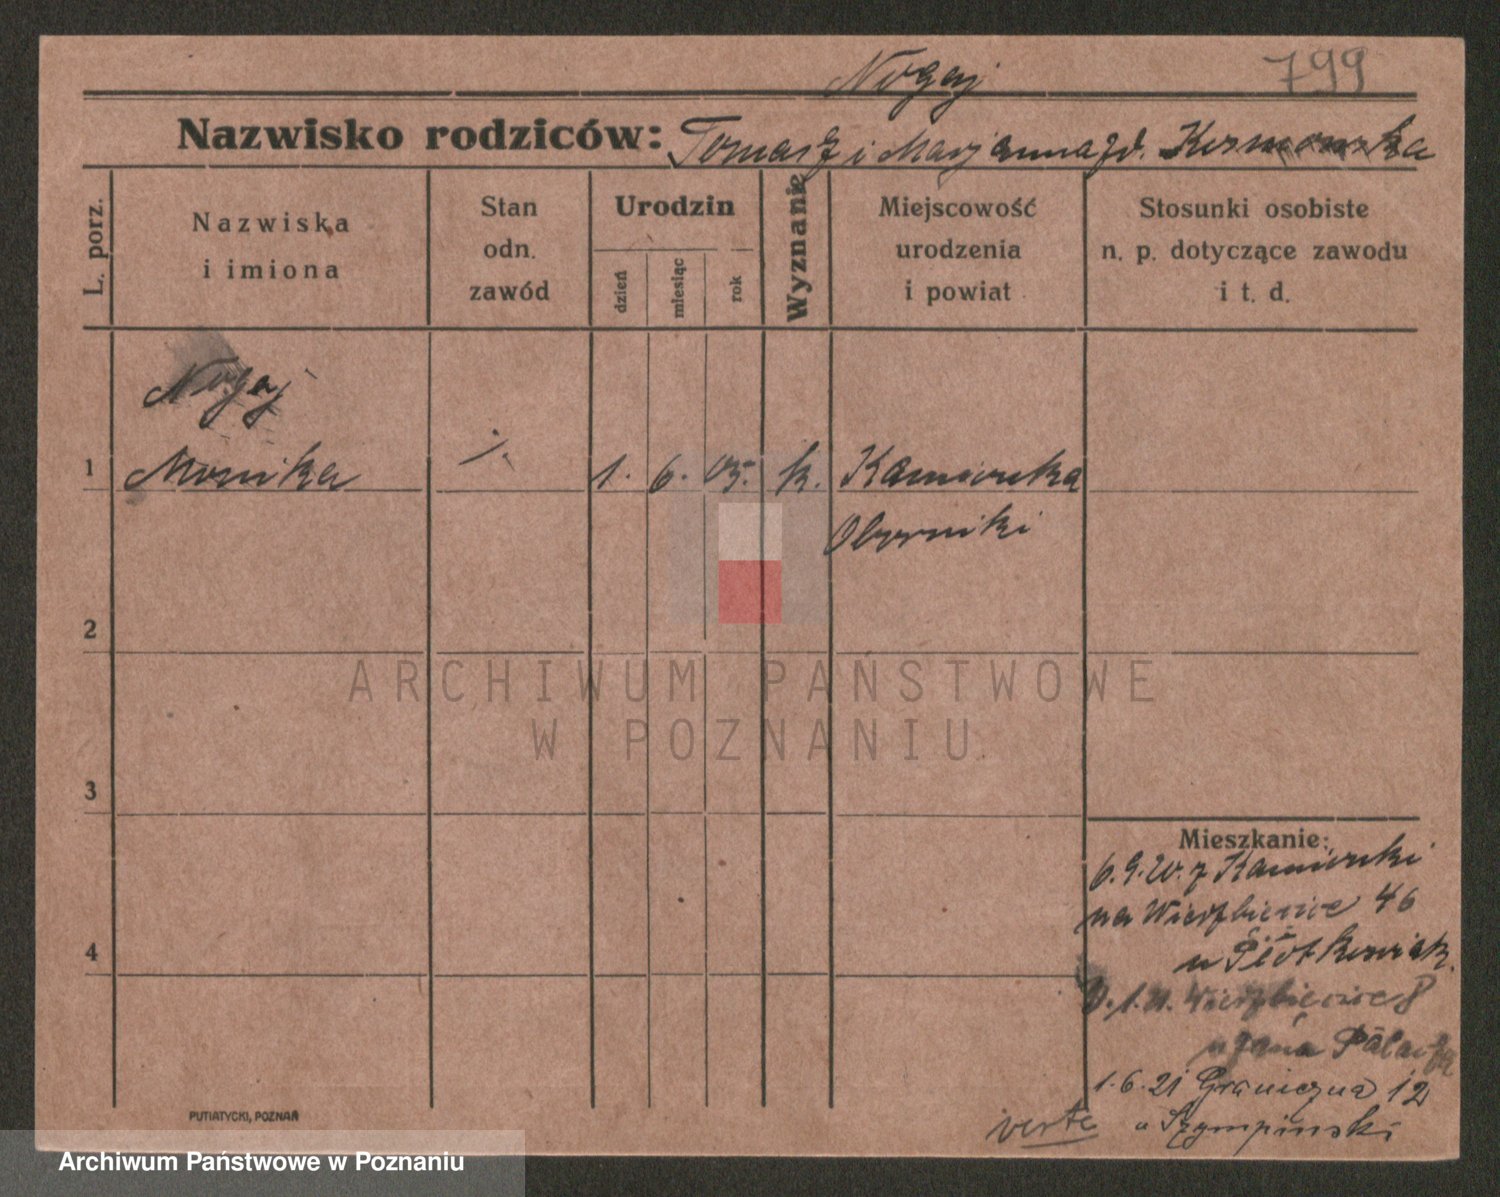 Nogaj
799
Nazwisko rodziców: Tomasz i Marjanna zd.
L. porz.
Nazwiska
i imiona
Stan
odn.
zawód
Urodzin
dzień
miesiąc
rok
Wyznanie
Miejscowość
urodzenia
i powiat
Stosunki osobiste
n. p. dotyczące zawodu
i t. d.
Nogaj
1 Monika 1. 6. 05. k. Kamionka
Oborniki
2
3
4
Mieszkanie:
6.9.20. z Kamionki
na Wierzbięcice 46
u
1. 21. Wierzbięcice 8
u Jana
1.6.21 Graniczna 12
u Szympiński
verte
PUTIATYCKI, POZNAŃ
ARCHIWUM PAŃSTWOWE
W POZNANIU
Archiwum Państwowe w Poznaniu